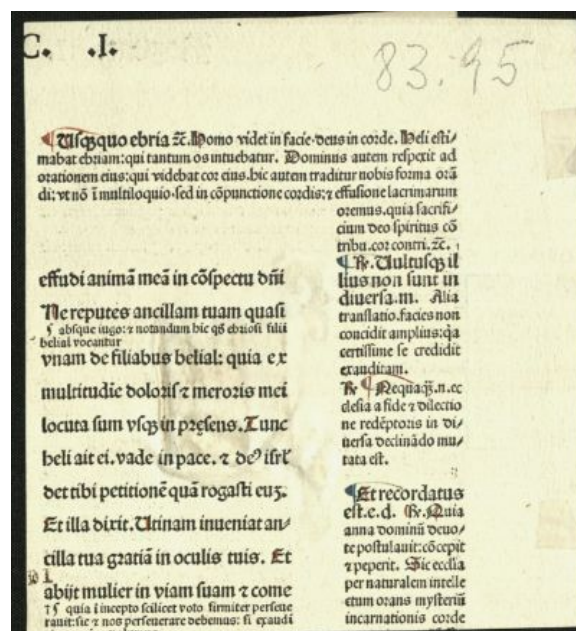 C. .I.
83.95
¶ Usq̃quo ebria ⁊c̃. Homo videt in facie·deus in corde. Heli esti/
mabat ebriam:qui tantum os intuebatur. Dominus autem respexit ad
orationem eius:qui videbat cor eius.hic autem traditur nobis forma orã
di:vt nõ ĩ multiloquio·sed in cõpunctione cordis:⁊ effusione lacrimarum
oremus.quia sacrifi/
cium deo spiritus cõ
tribu.cor contri.⁊c̃.
effudi animã meã in cõspectu dñi
Ne reputes ancillam tuam quasi
absque iugo:⁊ notandum hic qꝫ ebriosi filii
belial vocantur
vnam de filiabus belial: quia ex
multitudie doloris ⁊ meroris mei
locuta sum vsqꝫ in pręsens. Tunc
heli ait ei.vade in pace. ⁊ deꝰ isrl̃
det tibi petitionẽ quã rogasti euꝫ.
Et illa dixit. Utinam inueniat an/
cilla tua gratiã in oculis tuis. Et
abijt mulier in viam suam ⁊ come
quia ĩ incepto scilicet voto firmiter perseue
rauit:sic ⁊ nos perseuerare debemus: si exaudi
¶ R̃. Uultusqꝫ il
lius non sunt in
diuersa.m. Alia
translatio.facies non
concidit amplius:qa
certissime se credidit
exauditam.
R̃ ¶ Nequaq̃.n.ec
clesia a fide ⁊ dilectio
ne redẽptoris in di/
uersa declinãdo mu/
tata est.
¶ Et recordatus
est.e.d. R̃. Quia
anna dominũ deuo/
te postulauit:cõcepit
⁊ peperit. Sic ecclia
per naturalem intelle
ctum orans mysteriũ
incarnationis corde